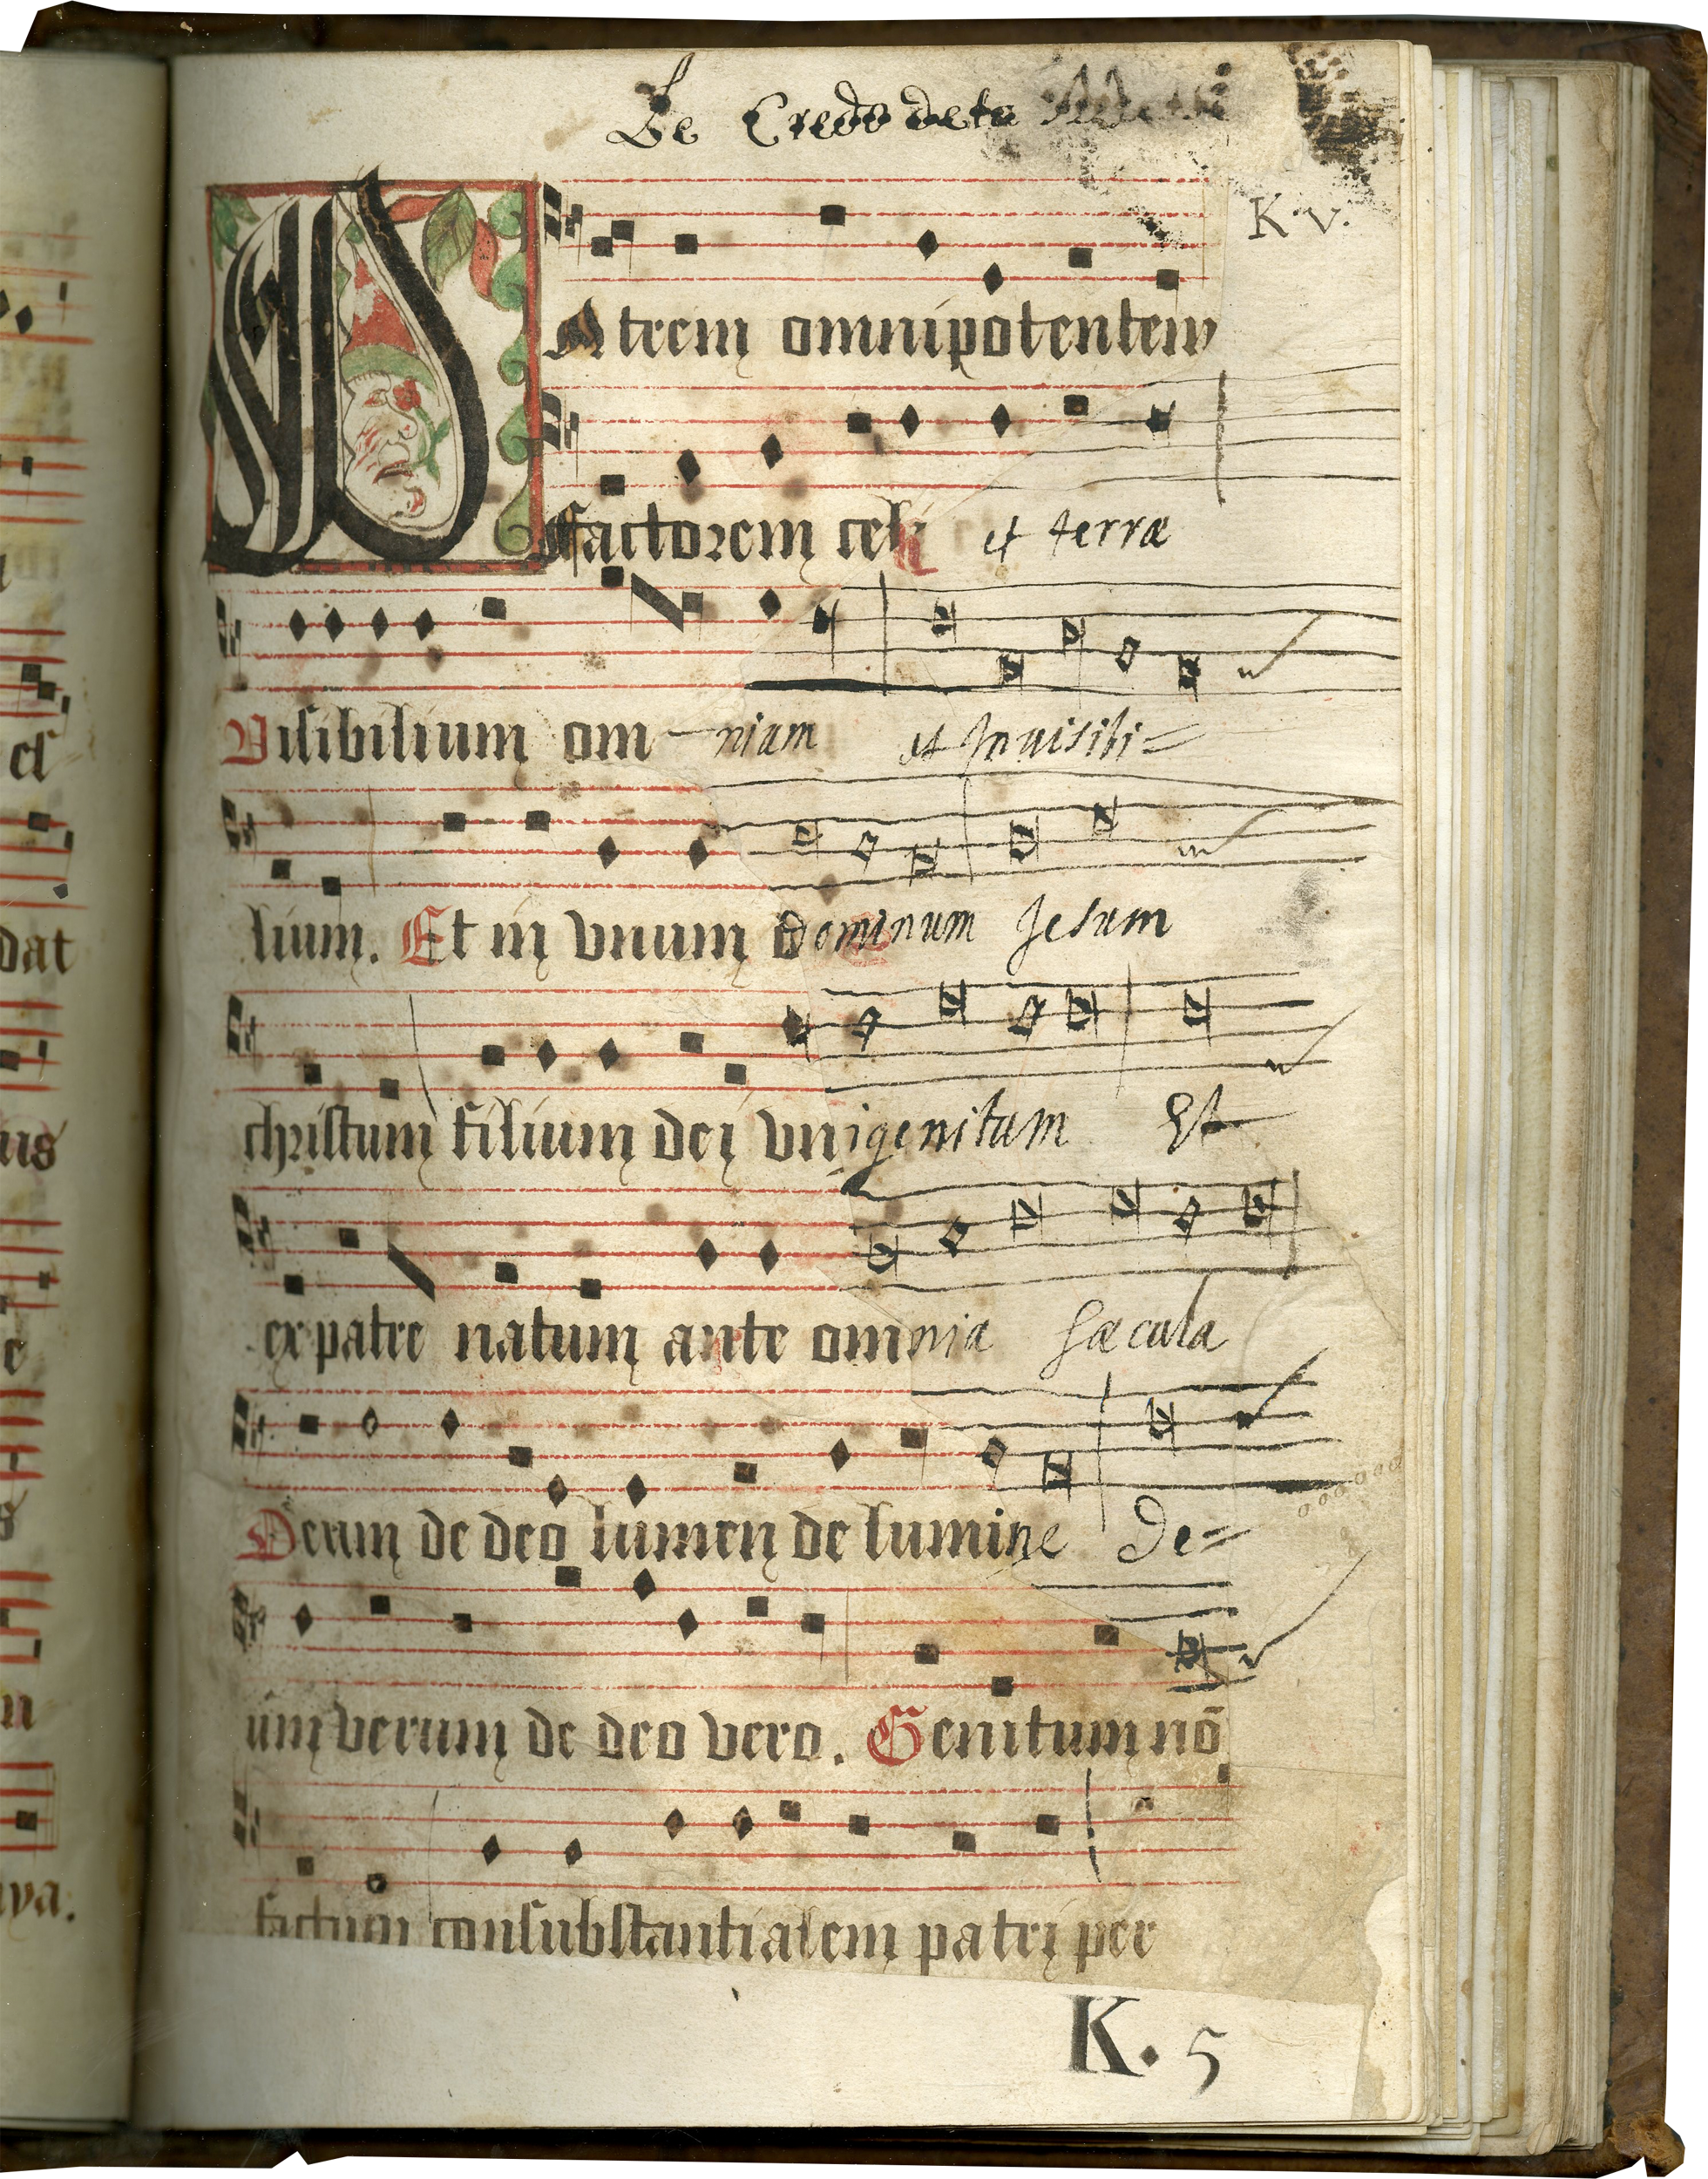 Le Credo de te
K v.
PAtrem omnipotentem
factorem celi et terræ
Visibilium om-niam et Jnuisibi=
lium. Et in vnum dominum Jesum
christum filium dei vnigenitum Et
ex patre natum ante omnia sæcula
Deum de deo lumen de lumine De=
um verum de deo vero. Genitum nō
factum consubstantialem patri per
K. 5
el
dat
us
e
n
aya.